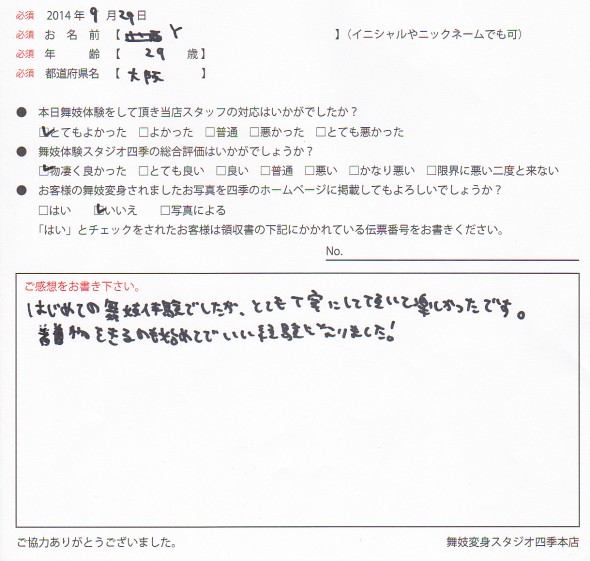 必須 2014 年 9 月 29 日
必須 お 名 前 【 Y 】（イニシャルやニックネームでも可）
必須 年 齢 【 29 歳】
必須 都道府県名 【 大阪 】
● 本日舞妓体験をして頂き当店スタッフの対応はいかがでしたか？
☑とてもよかった □よかった □普通 □悪かった □とても悪かった
● 舞妓体験スタジオ四季の総合評価はいかがでしょうか？
☑物凄く良かった □とても良い □良い □普通 □悪い □かなり悪い □限界に悪い二度と来ない
● お客様の舞妓変身されましたお写真を四季のホームページに掲載してもよろしいでしょうか？
□はい ☑いいえ □写真による
「はい」とチェックをされたお客様は領収書の下記にかかれている伝票番号をお書きください。
No.
ご感想をお書き下さい。
はじめての舞妓体験でしたが、とても丁寧にして頂いて楽しかったです。
着物をきるのも始めてでいい経験になりました！
ご協力ありがとうございました。
舞妓変身スタジオ四季本店